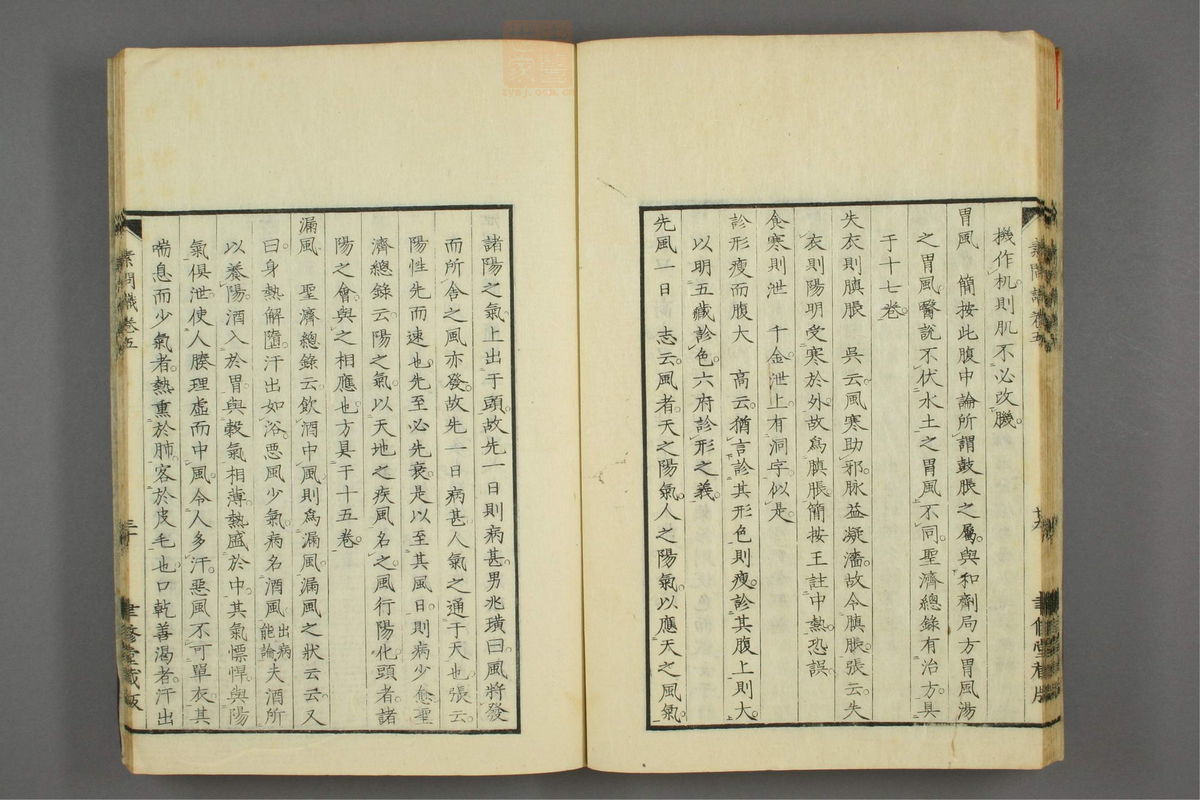 機作机則肌不必改機
胃風　簡按此腹中論所謂鼓脹之屬與和劑局方胃風湯
之胃風醫說不伏水土之胃風不同聖濟總錄有治方具
于十七卷
失衣則䐜脹　吳云風寒助邪脉益凝濇故令䐜脹張云失
衣則陽明受寒於外故爲䐜脹簡按王註中熱恐誤
食寒則泄　千金泄上有洞字似是
診形瘦而腹大　高云猶言診其形色則瘦診其腹上則大
以明五藏診色六府診形之義
先風一日　志云風者天之陽氣人之陽氣以應天之風氣
諸陽之氣上出于頭故先一日則病甚男兆璜曰風將發
而所舍之風亦發故先一日病甚人氣之通于天也張云
陽性先而速也先至必先衰是以至其風日則病少愈聖
濟總錄云陽之氣以天地之疾風名之風行陽化頭者諸
陽之會與之相應也方具于十五卷
漏風　聖濟總錄云飲酒中風則爲漏風漏風之狀云云又
曰身熱解墮汗出如浴惡風少氣病名酒風出病能論夫酒所
以養陽酒入於胃與穀氣相薄熱盛於中其氣慓悍與陽
氣俱泄使人腠理虛而中風令人多汗惡風不可單衣其
喘息而少氣者熱熏於肺客於皮毛也口乾善渴者汗出
素問識卷五
三十
聿修堂藏版